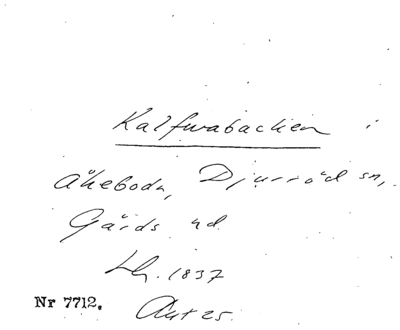 Kalfwabacken i
Åkeboda, Djurröd sn,
Gärds hd.
Lh. 1837
Nr 7712. Akt 25